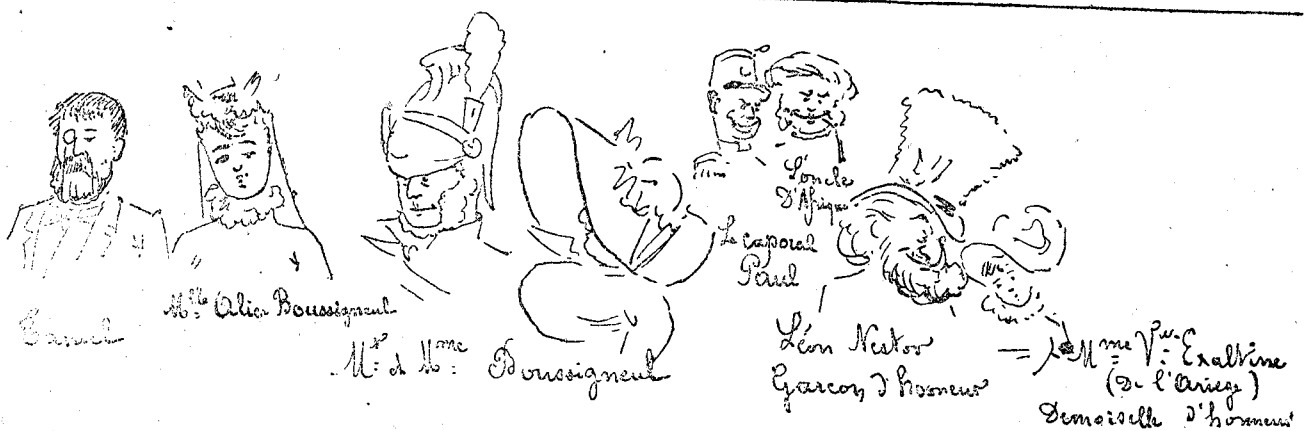 Mlle Alice Boussigneul
Mr et Mme Boussigneul
Le caporal
Paul
L'oncle
D'Afrique
Léon Nestor
Garçon d'honneur
Mme Vve Exaltine
(De l'Ariège)
Demoiselle d'honneur